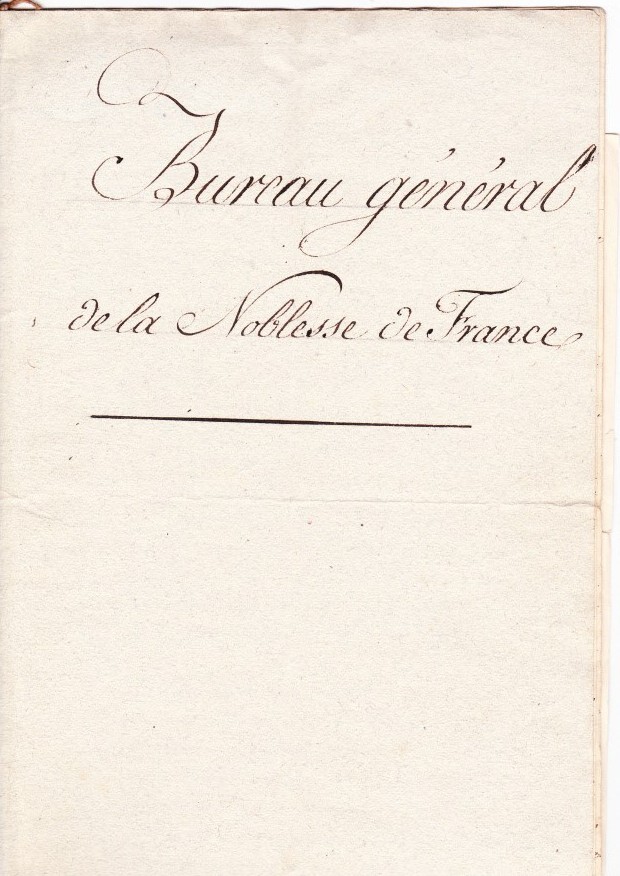 Bureau général
de la Noblesse de France